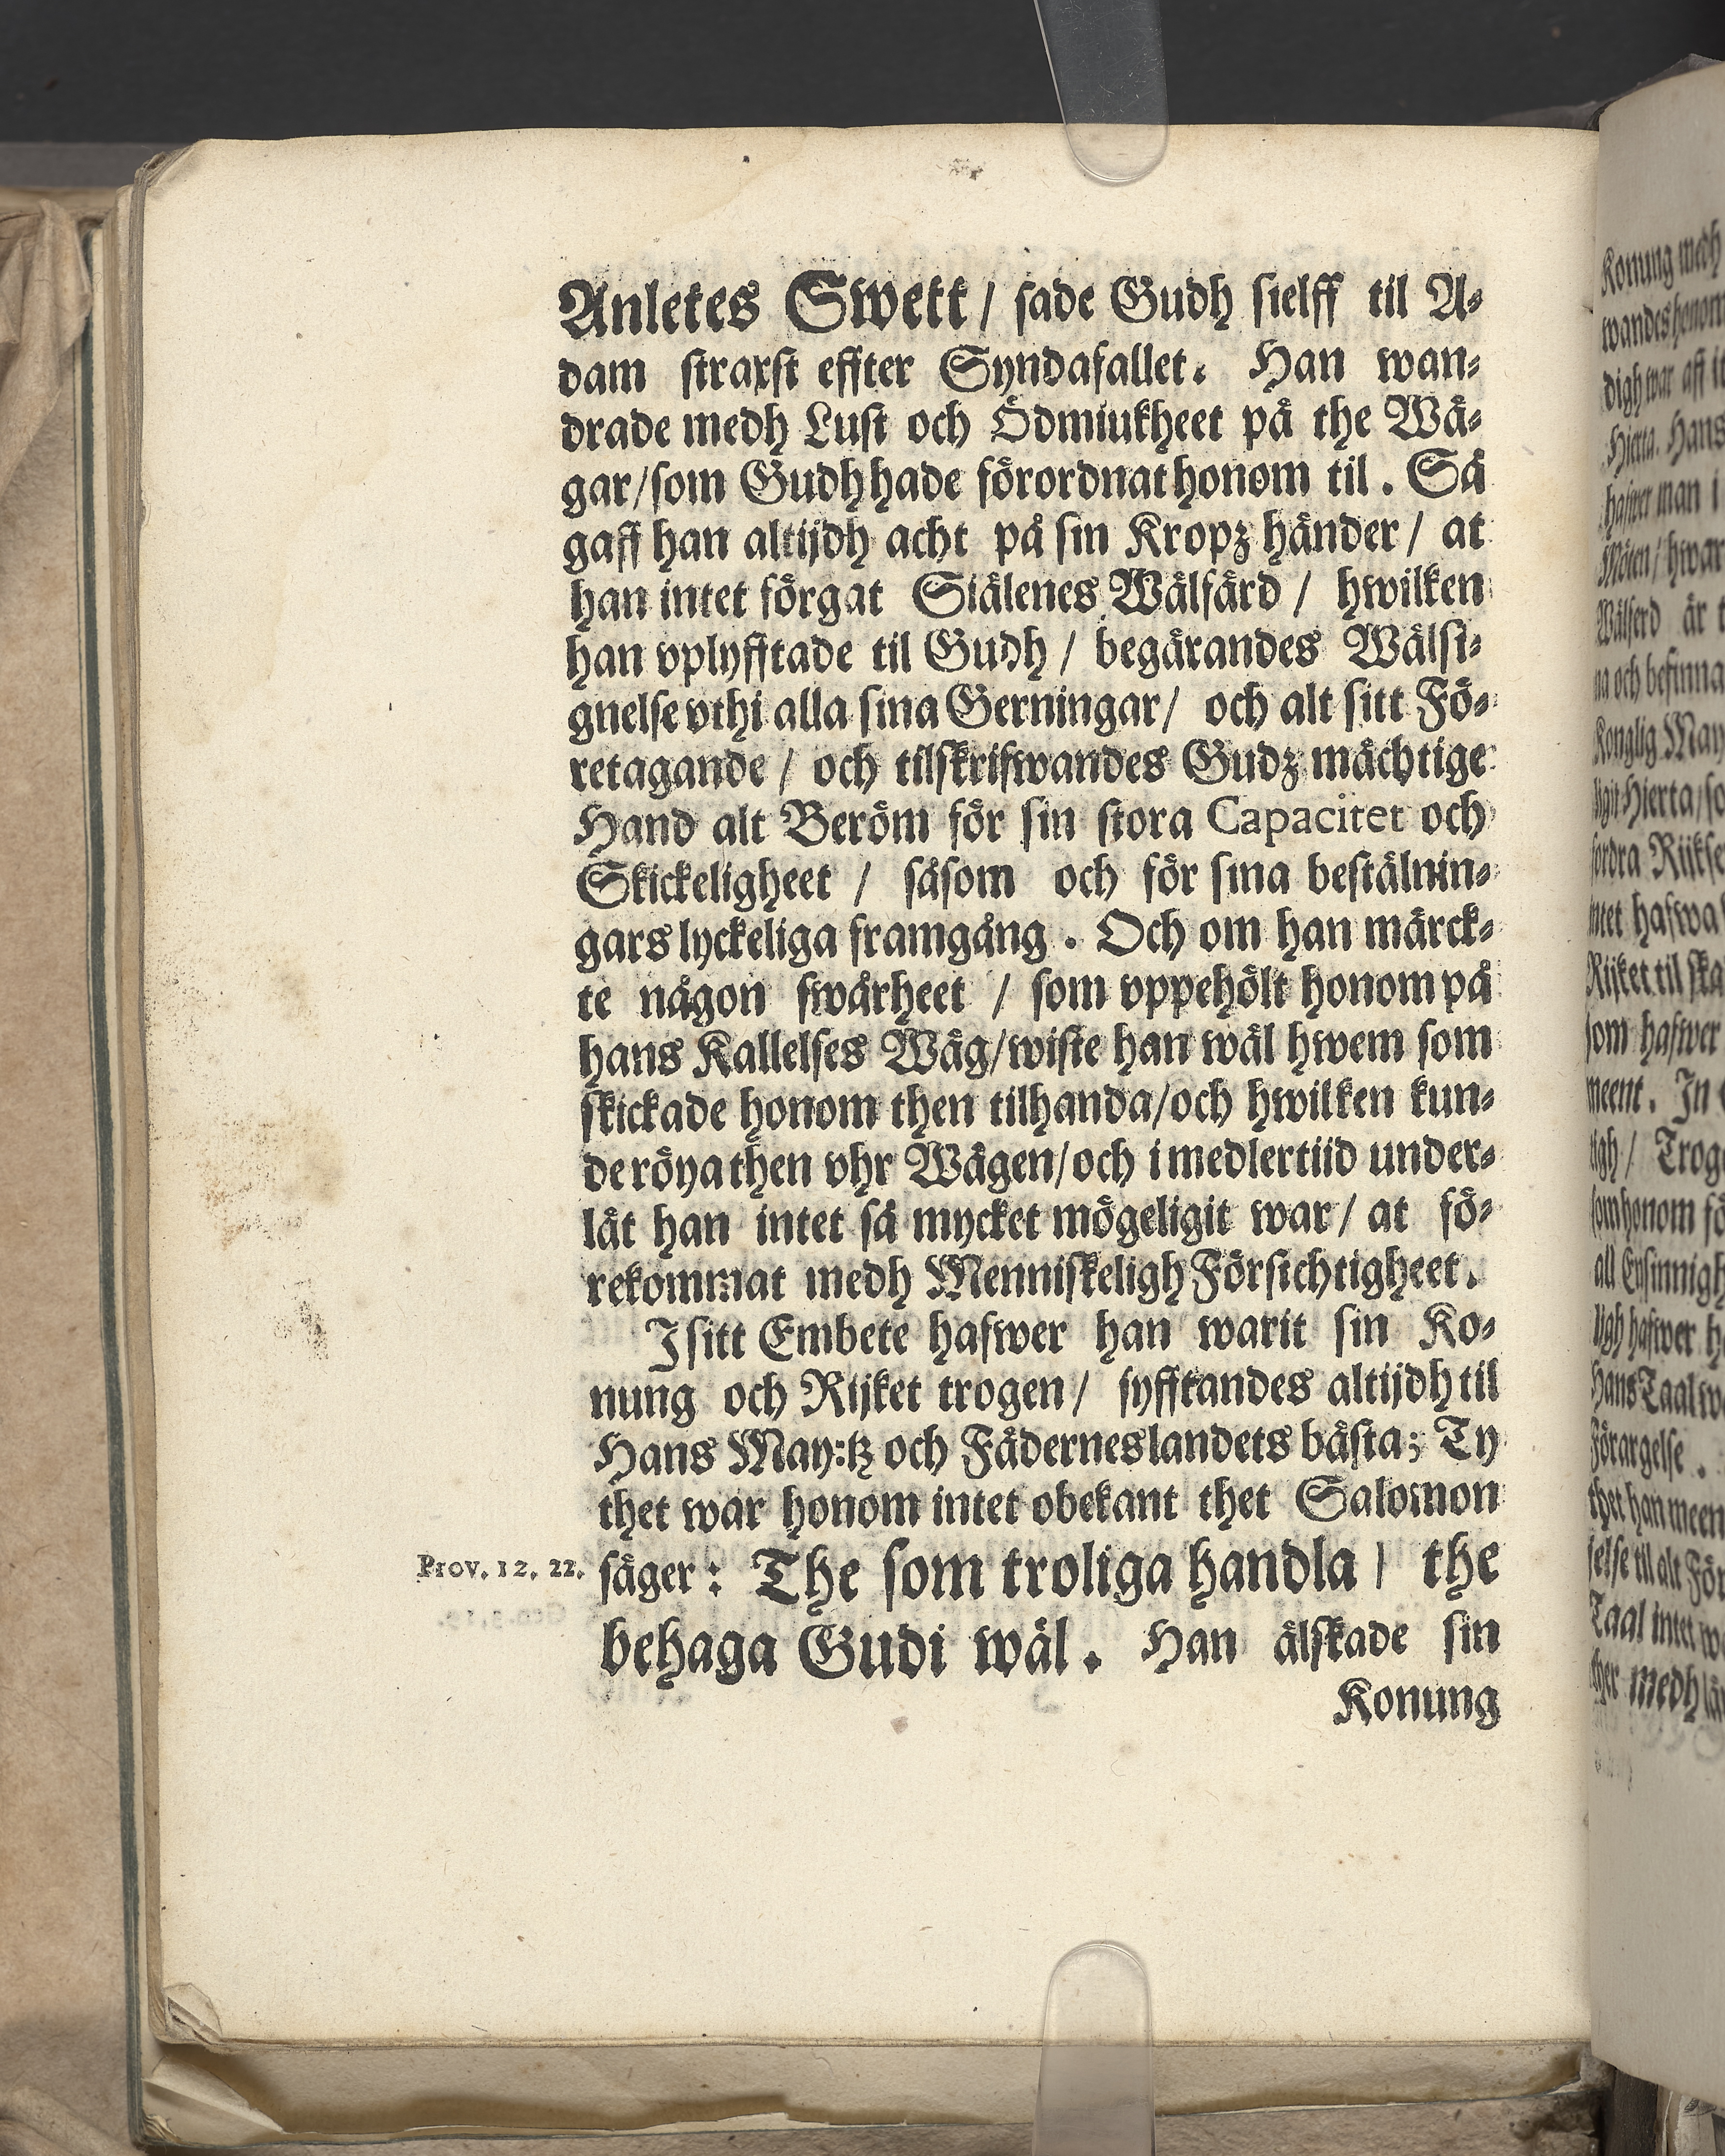 Anletes Swett / sade Gudh sielff til A-
dam straxst effter Syndafallet. Han wan-
drade medh Lust och Ödmiukheet på the Wä-
gar/som Gudh hade förordnat honom til. Så
gaff han altijdh acht på sin Kropz händer / at
han intet förgat Siälenes Wälfärd / hwilken
han vplyfftade til Gudh / begärandes Wälsi-
gnelse vthi alla sina Gerningar/ och alt sitt Fö-
retagande / och tilskrifwandes Gudz mächtige
Hand alt Beröm för sin stora Capacitet och
Skickeligheet / såsom och för sina bestälnin-
gars lyckeliga framgång. Och om han märck-
te någon swårheet / som vppehölt honom på
hans Kallelses Wäg/wiste han wäl hwem som
skickade honom then tilhanda/och hwilken kun-
de röya then vhr Wägen/och imedlertiid under-
lät han intet så mycket mögeligit war/ at fö-
rekommat medh Menniskeligh Försichtigheet.
I sitt Embete hafwer han warit sin Ko-
nung och Rijket trogen/ syfftandes altijdh til
Hans May:tz och Fäderneslandets bästa; Ty
thet war honom intet obekant thet Salomon
Prov. 12. 22. säger: The som troliga handla / the
behaga Gudi wäl. Han älskade sin
Konung
Konung medh
wandes honom
digh war
Hjerta. Hans
hafwer man i
Möten/ hwar
Wälferd är
na och befinna
Konglig May
ligit Hierta/so
fordra Rijkse
intet hafwa
Rijket til ska
som hafwer
meent. In
ligh / Trog
som honom fö
all Ensinnigh
ligh hafwer
Hans Taal
Förargelse.
thet han meen
else til alt För
Taal intet
ther medh